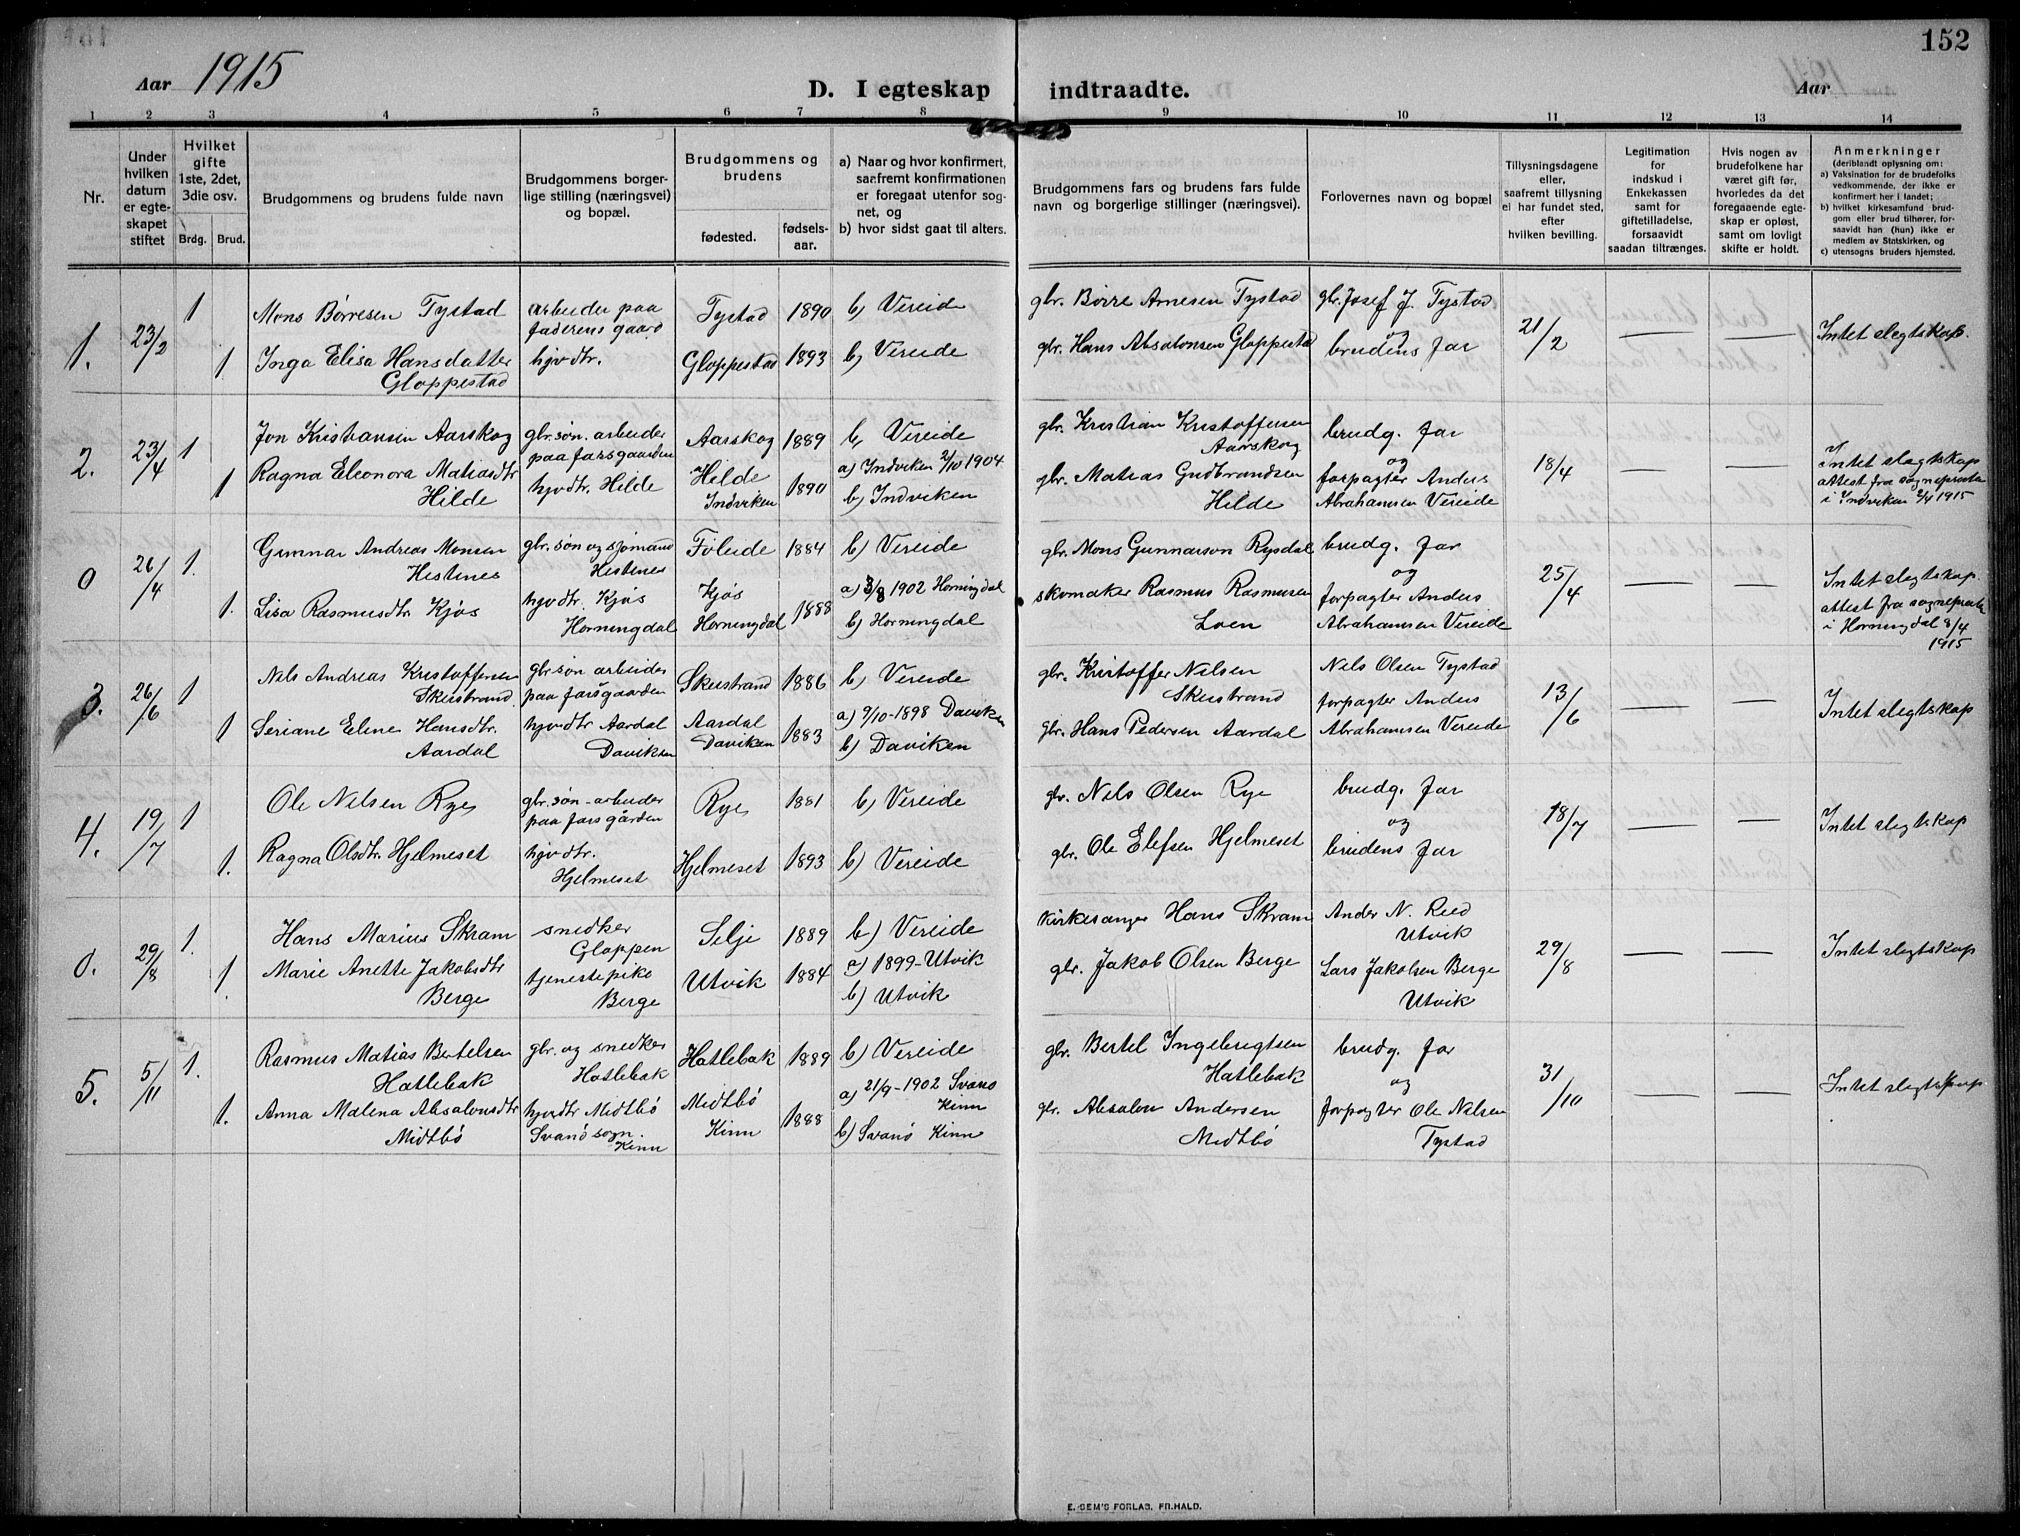 152
Aar 1915
D. I egteskap indtraadte.
Aar
1 2 3 4 5 6 7 8 9 10 11 12 13 14
Nr.
Under hvilken datum er egte-skapet stiftet
Hvilket gifte 1ste, 2det, 3die osv.
Brdg. Brud.
Brudgommens og brudens fulde navn
Brudgommens borger-lige stilling (næringsvei) og bopæl.
Brudgommens og brudens
fødested.
fødsels-aar.
a) Naar og hvor konfirmert, saafremt konfirmationen er foregaat utenfor sog-net, og
b) hvor sidst gaat til alters.
Brudgommens fars og brudens fars fulde navn og borgerlige stillinger (næringsvei).
Forlovernes navn og bopæl
Tillysningsdagene eller, saafremt tillysning ei har fundet sted, efter hvilken bevilling.
Legitimation for indskud i Enkekassen samt for giftetilladelse, forsaavidt saadan tiltrænges.
Hvis nogen av brudefolkene har været gift før, hvorledes da det foregaaende egte-skap er opløst, samt om lovligt skifte er holdt.
Anmerkninger
(deriblandt oplysning om:
a) Vaksination for de brudefolks vedkommende, der ikke er konfirmert her i landet;
b) hvilket kirkesamfund brud-gom eller brud tilhører, for-saavidt han (hun) ikke er medlem av Statskirken, og
c) utensogns bruders hjemsted.
1. 23/2 1 Mons Børresen Tystad arbeider paa faderens gaard Tystad 1890 b) Vereide gbr. Børre Arnesen Tystad gbr. Josef J. Tystad og 21/2 — — Intet slegtskap.
1 Inga Elisa Hansdatter Gloppestad hjvdtr. Gloppestad 1893 b) Vereide gbr. Hans Absalonsen Gloppestad brudens far
2. 23/4 1 Jon Kristiansen Aarskog gbr. søn. arbeider paa farsgaarden Aarskog 1889 b) Vereide gbr. Kristian Kristoffersen Aarskog brudg. far og 18/4 — — Intet slegtskap
1 Ragna Eleonora Matiasdtr Hilde hjvdtr. Hilde Hilde Indviken 1890 a) Indviken 2/10 1904 b) Indviken gbr. Matias Gudbrandsen Hilde forpagter Anders Abrahamsen Vereide attest fra sogneprest i Indviken 7/4 1915
0 26/4 1. Gunnar Andreas Monsen Hestenes gbr. søn og sjømand Hestenes Føleide 1884 b) Vereide gbr. Mons Gunnarson Rygdal brudg. far og 25/4 — — Intet slegtskap.
1. Lisa Rasmusdtr Kjøs hjvdtr. Kjøs Horningdal Kjøs Horningdal 1888 a) 3/8 1902 Horningdal b) Horningdal skomaker Rasmus Rasmusen Loen forpagter Anders Abrahamsen Vereide attest fra sogneprest i Horningdal 8/4 1915
3. 26/6 1 Nils Andreas Kristoffersen Skeistrand. gbr. søn arbeider paa farsgaarden Skeistrand 1886 b) Vereide gbr. Kristoffer Nilsen Skeistrand Nils Olsen Tystad 13/6 — — Intet slegtskap
1 Seriane Eline Hansdtr. Aardal hjvdtr Aardal Daviken Aardal Daviken 1883 a) 9/10-1898 Daviken b) Daviken gbr. Hans Pedersen Aardal forpagter Anders Abrahamsen Vereide
4. 19/7 1 Ole Nilsen Rye gbr. søn - arbeider paa farsgården Rye 1881 b) Vereide gbr. Nils Olsen Rye brudg. far og 18/7 — — Intet slegtskap
1. Ragna Olsdtr Hjelmeset hjvdtr. Hjelmeset Hjelmeset 1893 b) Vereide gbr. Ole Elefsen Hjelmeset brudens far
0. 29/8 1. Hans Marius Skram snedker Gloppen Selje 1889 b) Vereide kirkesanger Hans Skram Ander N. Reed Utvik 29/8 — — Intet slegtskap
1 Marie Anette Jakobsdtr Berge tjenestepike Berge Utvik 1884 a) 1899-Utvik b) Utvik gbr. Jakob Olsen Berge Lars Jakobsen Berge Utvik
5. 5/11 1. Rasmus Matias Bertelsen Hatlebak gbr. og snedker Hatlebak Hatlebak 1889 b) Vereide gbr. Bertel Ingebrigtsen Hatlebak brudg. far og 31/10 — — Intet slegtskap
1. Anna Malena Absalonsdtr Midtbø hjvdtr Midtbø Svanø sogn. Kinn Midtbø Kinn 1888 a) 21/9-1902 Svanø Kinn b) Svanø Kinn gbr. Absalon Andersen Midtbø forpagter Ole Nilsen Tystad
E. SEM'S FORLAG, FR.HALD.